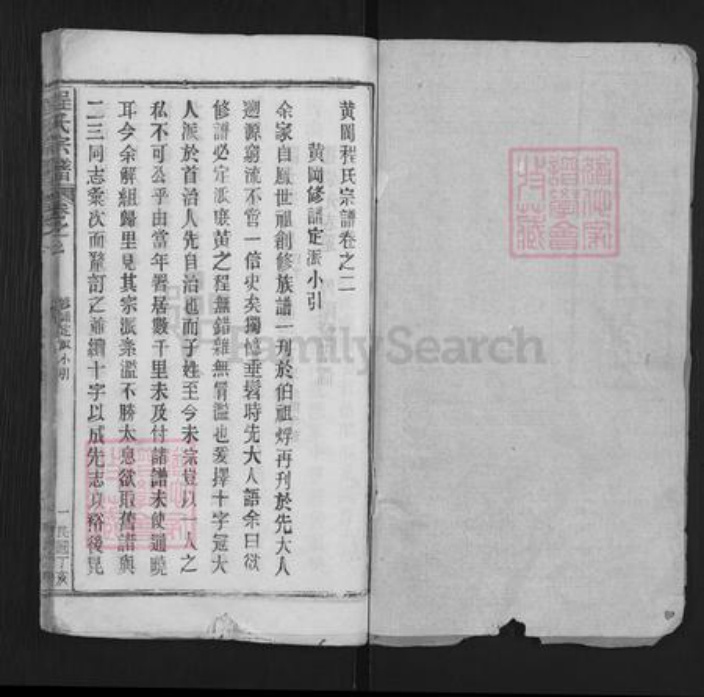 黃岡程氏宗譜卷之二
黃岡修譜定派小引
余家自鳳世祖創修族譜一刊於伯祖烰再刊於先大人
遡源窮流不啻一信史矣獨憶垂髫時先大人語余曰欲
修譜必定派庶黃之程無錯雜無冐濫也爰擇十字冠大
人派於首治人先自治也而子姓至今未宗豈以一人之
私不可公乎由當年署居數千里未及付諸譜未使通曉
耳今余解組歸里見其宗派紊濫不勝太息欲取舊譜與
二三同志彙次而釐訂之並續十字以成先志以裕後昆
程氏宗譜
卷之二
修譜定派小引
一
民國丁亥
FamilySearch